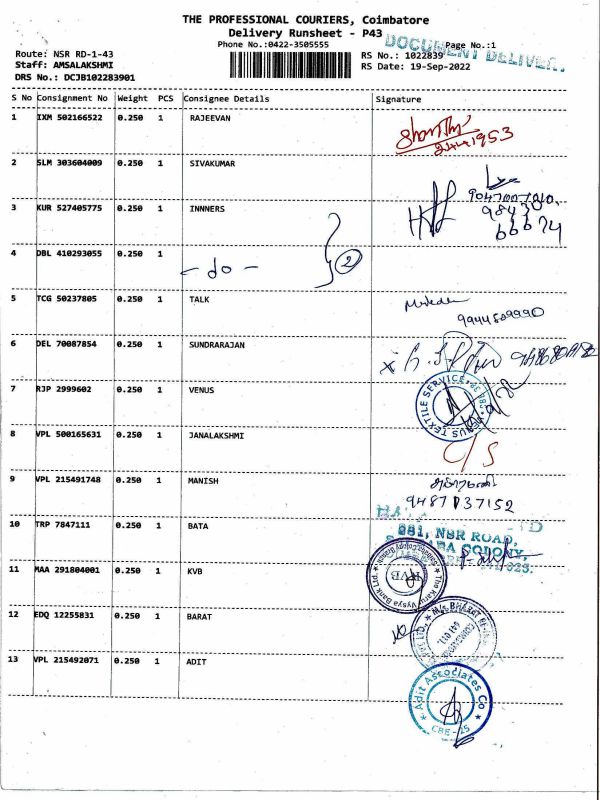 THE PROFESSIONAL COURIERS, Coimbatore
Delivery Runsheet - P43
Phone No.:0422-3505555
Page No.:1
DOCUMENT DELIVERY
Route: NSR RD-1-43
RS No.: 1022839
Staff: AMSALAKSHMI
RS Date: 19-Sep-2022
DRS No.: DCJB102283901
S No Consignment No Weight PCS Consignee Details Signature
1 IXM 502166522 0.250 1 RAJEEVAN
2 SLM 303604009 0.250 1 SIVAKUMAR
3 KUR 527405775 0.250 1 INNNERS
98430
66674
4 DBL 410293055 0.250 1
- do - 2
5 TCG 50237805 0.250 1 TALK
9944509990
6 DEL 70087854 0.250 1 SUNDRARAJAN
7 RJP 2999602 0.250 1 VENUS
VENUS TEXTILE SERVICE
8 VPL 500165631 0.250 1 JANALAKSHMI
C/S
9 VPL 215491748 0.250 1 MANISH
9487737152
10 TRP 7847111 0.250 1 BATA
NSR ROAD,
COLONY,
11 MAA 291804001 0.250 1 KVB
The Karur Vysya Bank
KVB
12 EDQ 12255831 0.250 1 BARAT
M/s. BHARAT
13 VPL 215492071 0.250 1 ADIT
Adit Associates
CBE-25